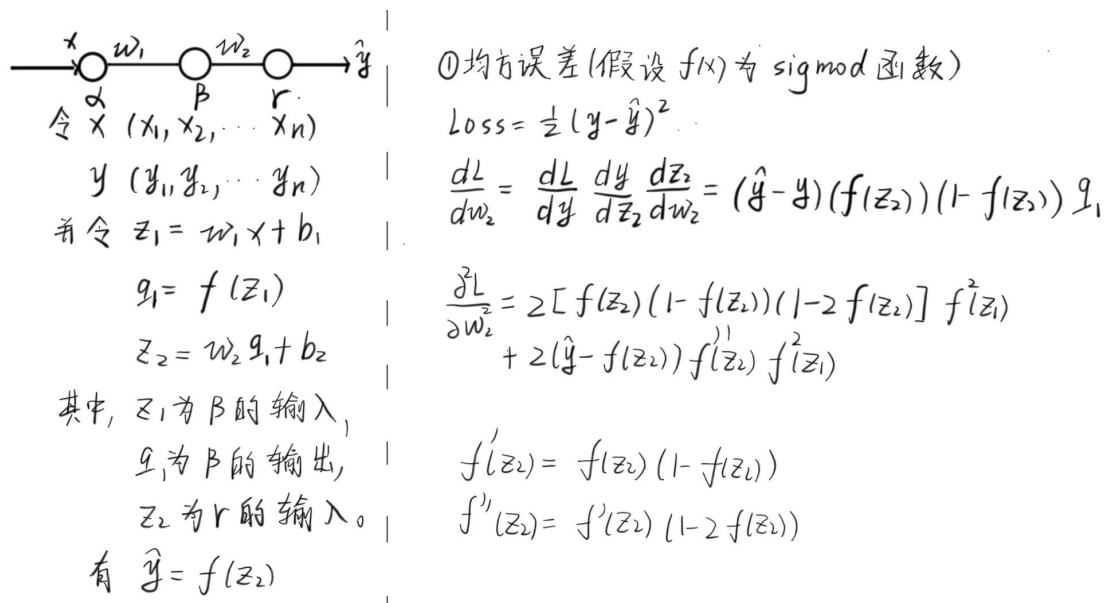 x w₁ w₂ ŷ
α β r
令 x (x₁, x₂, ⋯ xn)
y (y₁, y₂, ⋯ yn)
并令 z₁ = w₁x + b₁
q₁ = f(z₁)
z₂ = w₂q₁ + b₂
其中, z₁为β的输入,
q₁为β的输出,
z₂为r的输入。
有 ŷ = f(z₂)
①均方误差(假设f(x)为sigmod函数)
Loss = ½(y-ŷ)²
dL/dw₂ = dL/dy dy/dz₂ dz₂/dw₂ = (ŷ-y)(f(z₂))(1-f(z₂))q₁
∂²L/∂w₂² = 2[f(z₂)(1-f(z₂))(1-2f(z₂)] f²(z₁)
+ 2(ŷ-f(z₂))f''(z₂) f²(z₁)
f'(z₂) = f(z₂)(1-f(z₂))
f''(z₂) = f'(z₂)(1-2f(z₂))